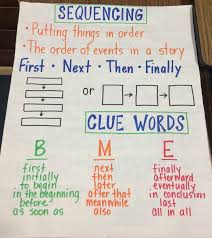 SEQUENCING
• Putting things in order
• The order of events in a story
First • Next • Then • Finally
or
CLUE WORDS
B M E
first next finally
initially then afterward
to begin later eventually
in the beginning after that in conclusion
before meanwhile last
as soon as also all in all